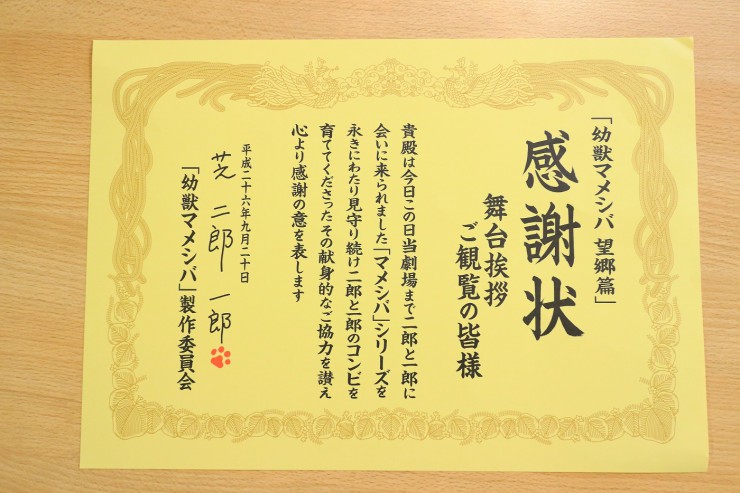 「幼獣マメシバ 望郷篇」
感謝状
舞台挨拶
ご観覧の皆様
貴殿は今日この日当劇場まで二郎と一郎に
会いに来られました「マメシバ」シリーズを
永きにわたり見守り続け二郎と一郎のコンビを
育ててくださったその献身的なご協力を讃え
心より感謝の意を表します
平成二十六年九月二十日
芝二郎 一郎
「幼獣マメシバ」製作委員会